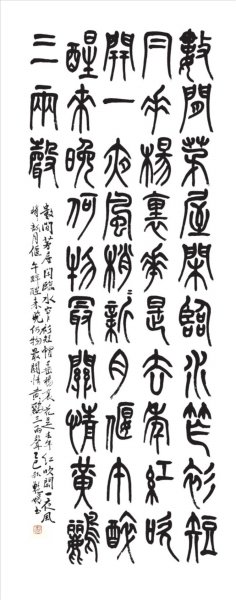 數間茅屋閑臨水窄衫短
帽垂楊裏花是去年紅吹
開一夜風梢〻新月偃午醉
醒來晚何物最關情黃鸝
三兩聲
數間茅屋閑臨水窄衫短帽垂楊裏花是去年紅吹開一夜風
梢〻新月偃午醉醒來晚何物最關情黃鸝三兩聲乙巳秋書